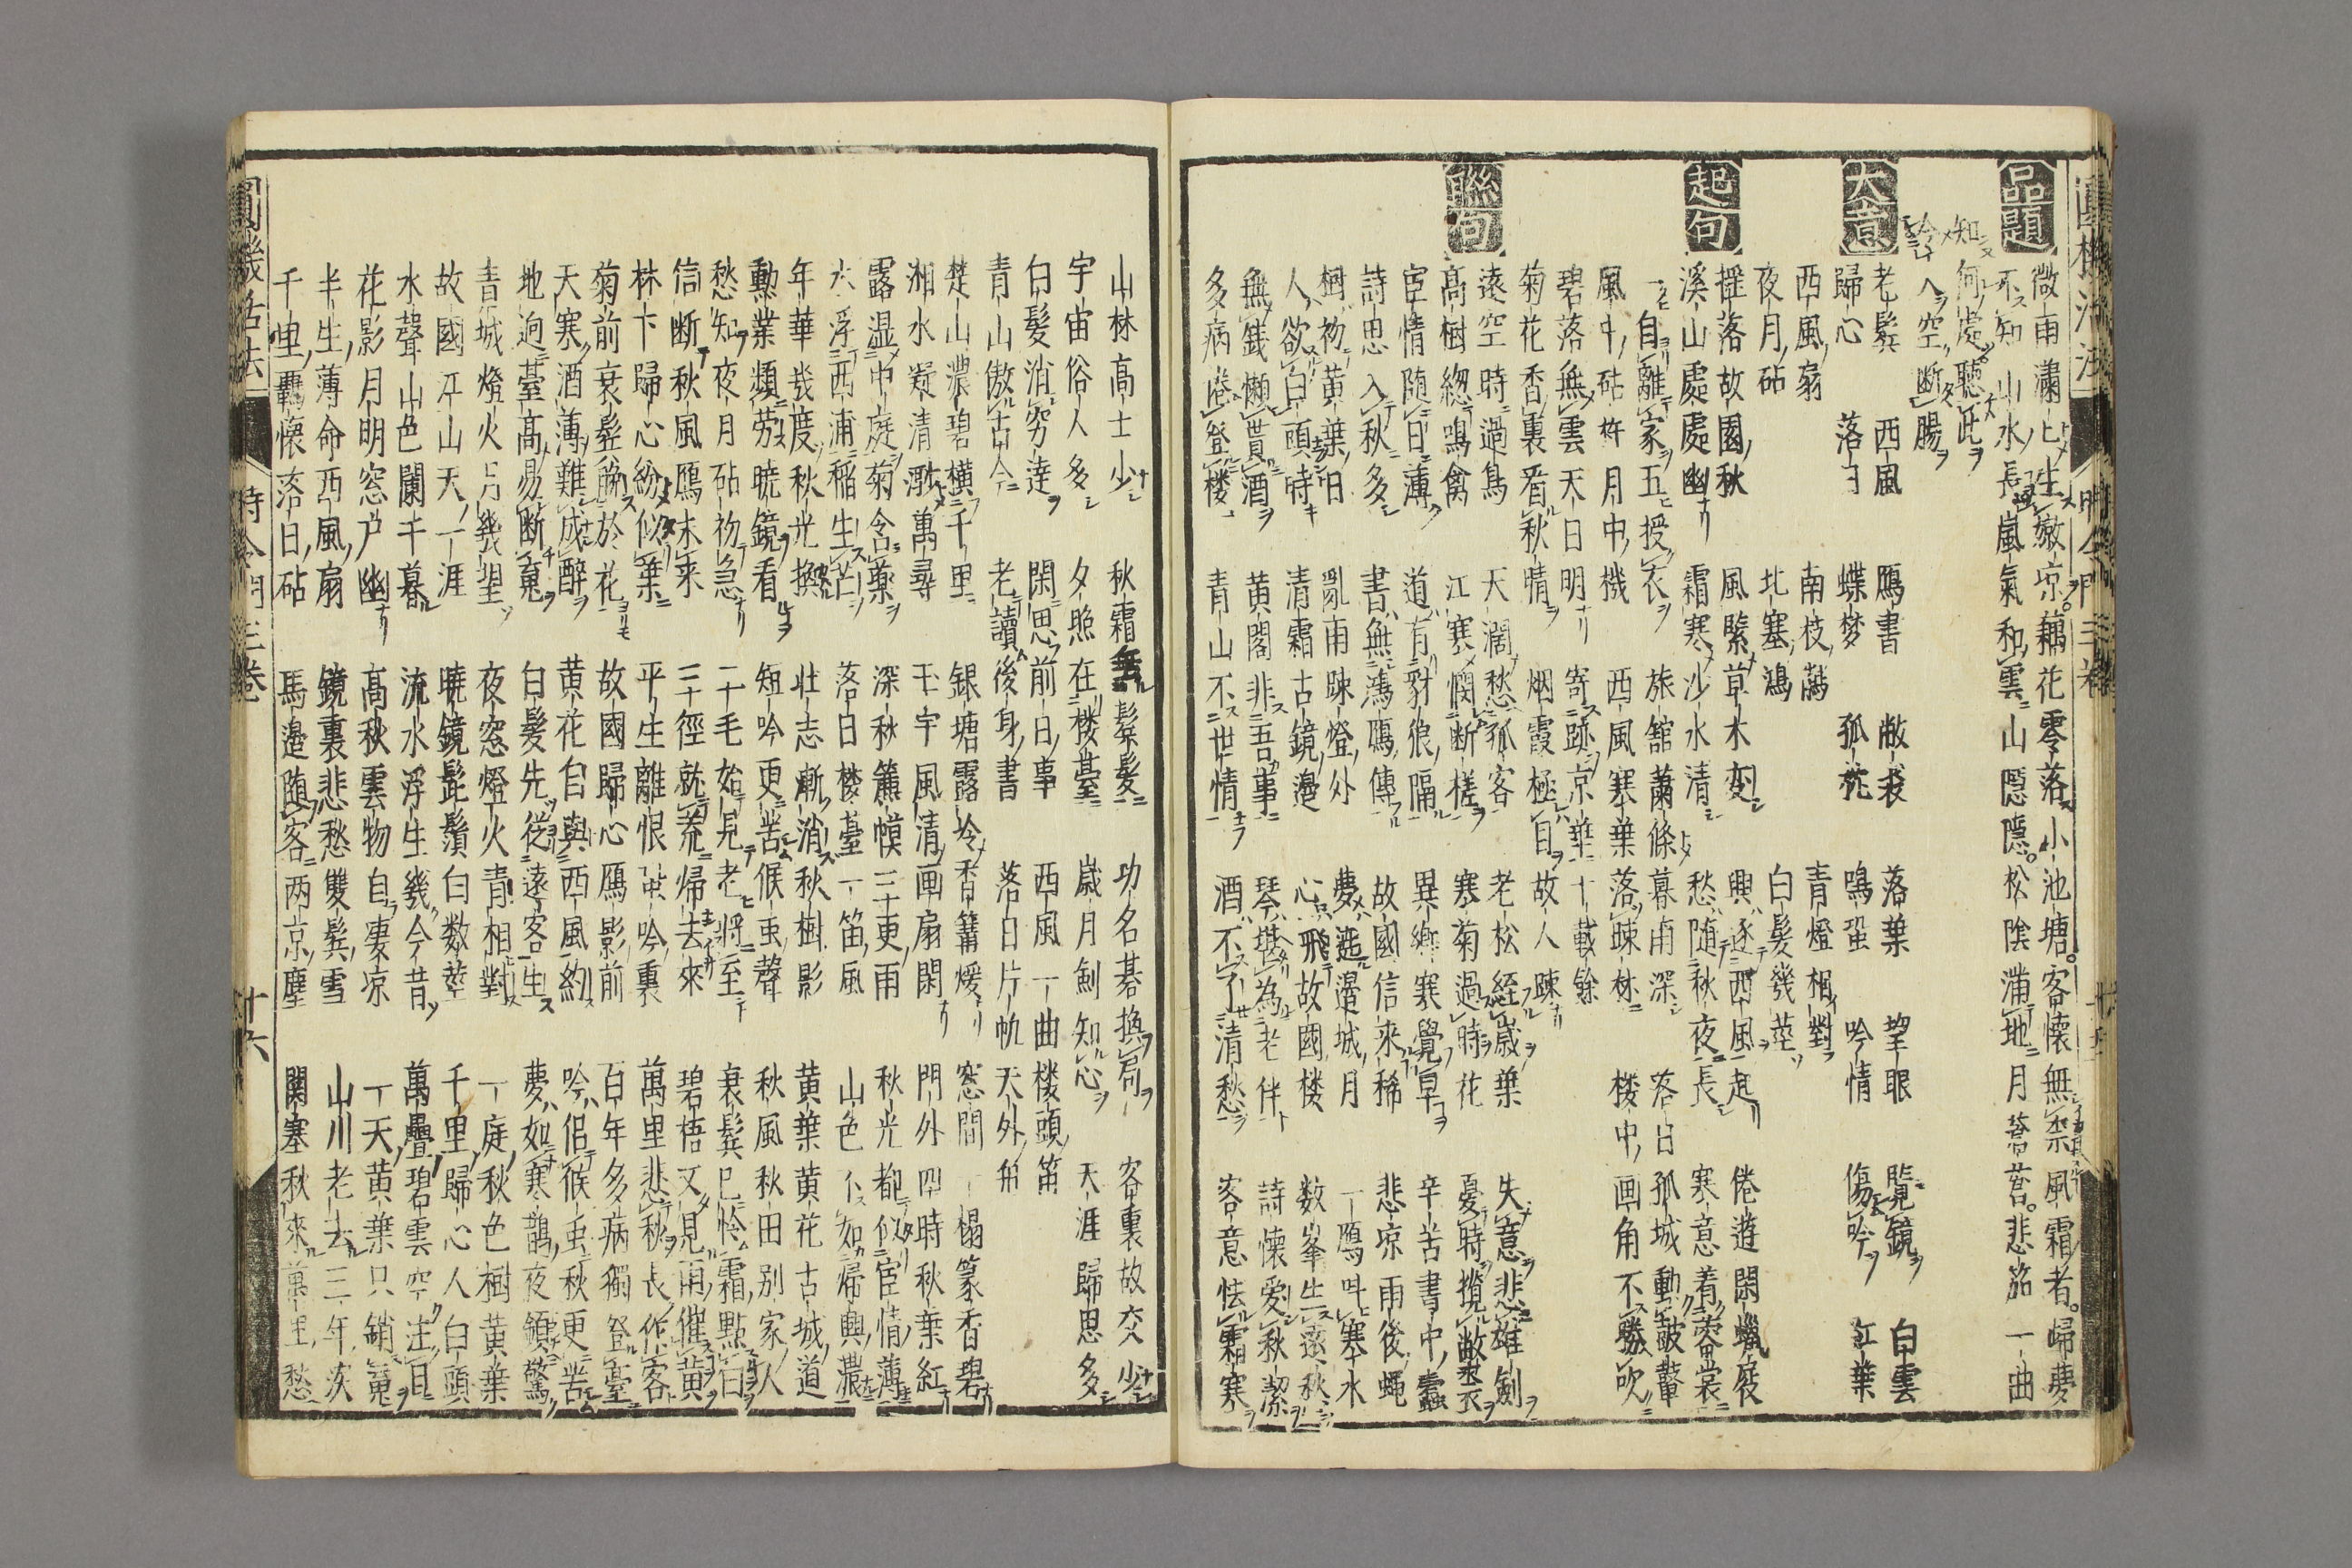 品題
微雨瀟瀟生嫩凉。藕花零落小池塘。客懷無柰風霜者。歸夢
不知山水長 嵐氣和雲山隠隠。松陰滿地月蒼蒼。悲笳一曲
知何處聽此
入空断腸
大意
老鬂 西風 鴈書 敝裘 落葉 望眼 覽鏡 白雲
歸心 落日 蝶梦 孤枕 鳴蛩 吟情 傷吟 紅葉
西風扇 南枝鵲 青燈相對
夜月砧 北塞鴻 白髮幾莖
起句
揺落故國秋 風緊草木変 興逐西風起 倦遊閑蠟屐
溪山處處幽 霜寒沙水清 愁随秋夜長 寒意着蓉裳
自離家五授衣 旅舘蕭條暮雨深 落日孤城動皷鼙
風中砧杵月中機 西風寒葉落踈林 楼中画角不勝吹
聯句
碧落無雲天日明 寄跡京華十載餘
菊花香裏看秋晴 烟霞極目故人踈
遠空時過鳥 天濶愁孤客 老松經歳葉 失意悲雄劍
高樹緫鳴禽 江寒閔断槎 寒菊過時花 憂時攬敝衣
宦情随日薄 道有豺狼隔 異郷寒覺早 辛苦書中蠹
詩思入秋多 書無鴻鴈傳 故國信来稀 悲凉雨後蠅
樹初黄葉日 亂雨踈燈外 夢遶邉城月 一鴈叫寒水
人欲白頭時 清霜古鏡邉 心飛故國楼 数峯生遠秋
無錢懶貰酒 黄閣非吾事 琴堪為老伴 詩懷愛秋潔
多病倦登楼 青山不世情 酒不了清愁 客意怯霜寒
圓機活法 時令門三巻
山林高士少 秋霜無鬂髪 功名碁換局 客裏故交少
宇宙俗人多 夕照在楼臺 歳月劍知心 天涯歸思多
白髮消窮達 閑思前日事 西風一曲楼頭笛
青山傲古今 老讀後身書 落日片帆天外舟
楚山濃碧横千里 銀塘露冷香篝煖 窓間一榻篆香碧
湘水凝清澈萬尋 玉宇風清画扇閑 門外四時秋葉紅
露湿中庭菊含蘂 深秋簾幙三十更雨 秋光都似宦情薄
大浮西浦稲生芒 落日楼臺一笛風 山色不如帰興濃
年華幾度秋光換 壮志漸消秋樹影 黄葉黄花古城道
勲業頻勞暁鏡看 短吟更苦候虫聲 秋風秋田别家人
愁知夜月砧初急 二十毛始見老將至 衰鬂已怜霜點白
信断秋風鴈未来 三十徑就荒帰去來 碧梧又見雨催黄
林下歸心紛似葉 平生離恨虫吟裏 萬里悲秋長作客
菊前衰髮觧於花 故國歸心鴈影前 百年多病獨登臺
天寒酒薄難成醉 黄花自與西風約 吟侶候虫秋更苦
地迥臺高易断䰟 白髮先從遠客生 夢如寒鵲夜頻驚
青城燈火月幾望 夜窓燈火青相對 一庭秋色樹黄葉
故國江山天一涯 暁鏡髭鬚白数莖 千里歸心人白頭
水聲山色闌千暮 流水浮生幾今昔 萬疊碧雲空注目
花影月明窓户幽 高秋雲物自凄凉 一天黄葉只銷䰟
半生薄命西風扇 鏡裏悲愁雙鬂雪 山川老去三年涙
千里羈懷落日砧 馬邉随客两京塵 関塞秋來萬里愁
圓機活法 時令門三巻 十六